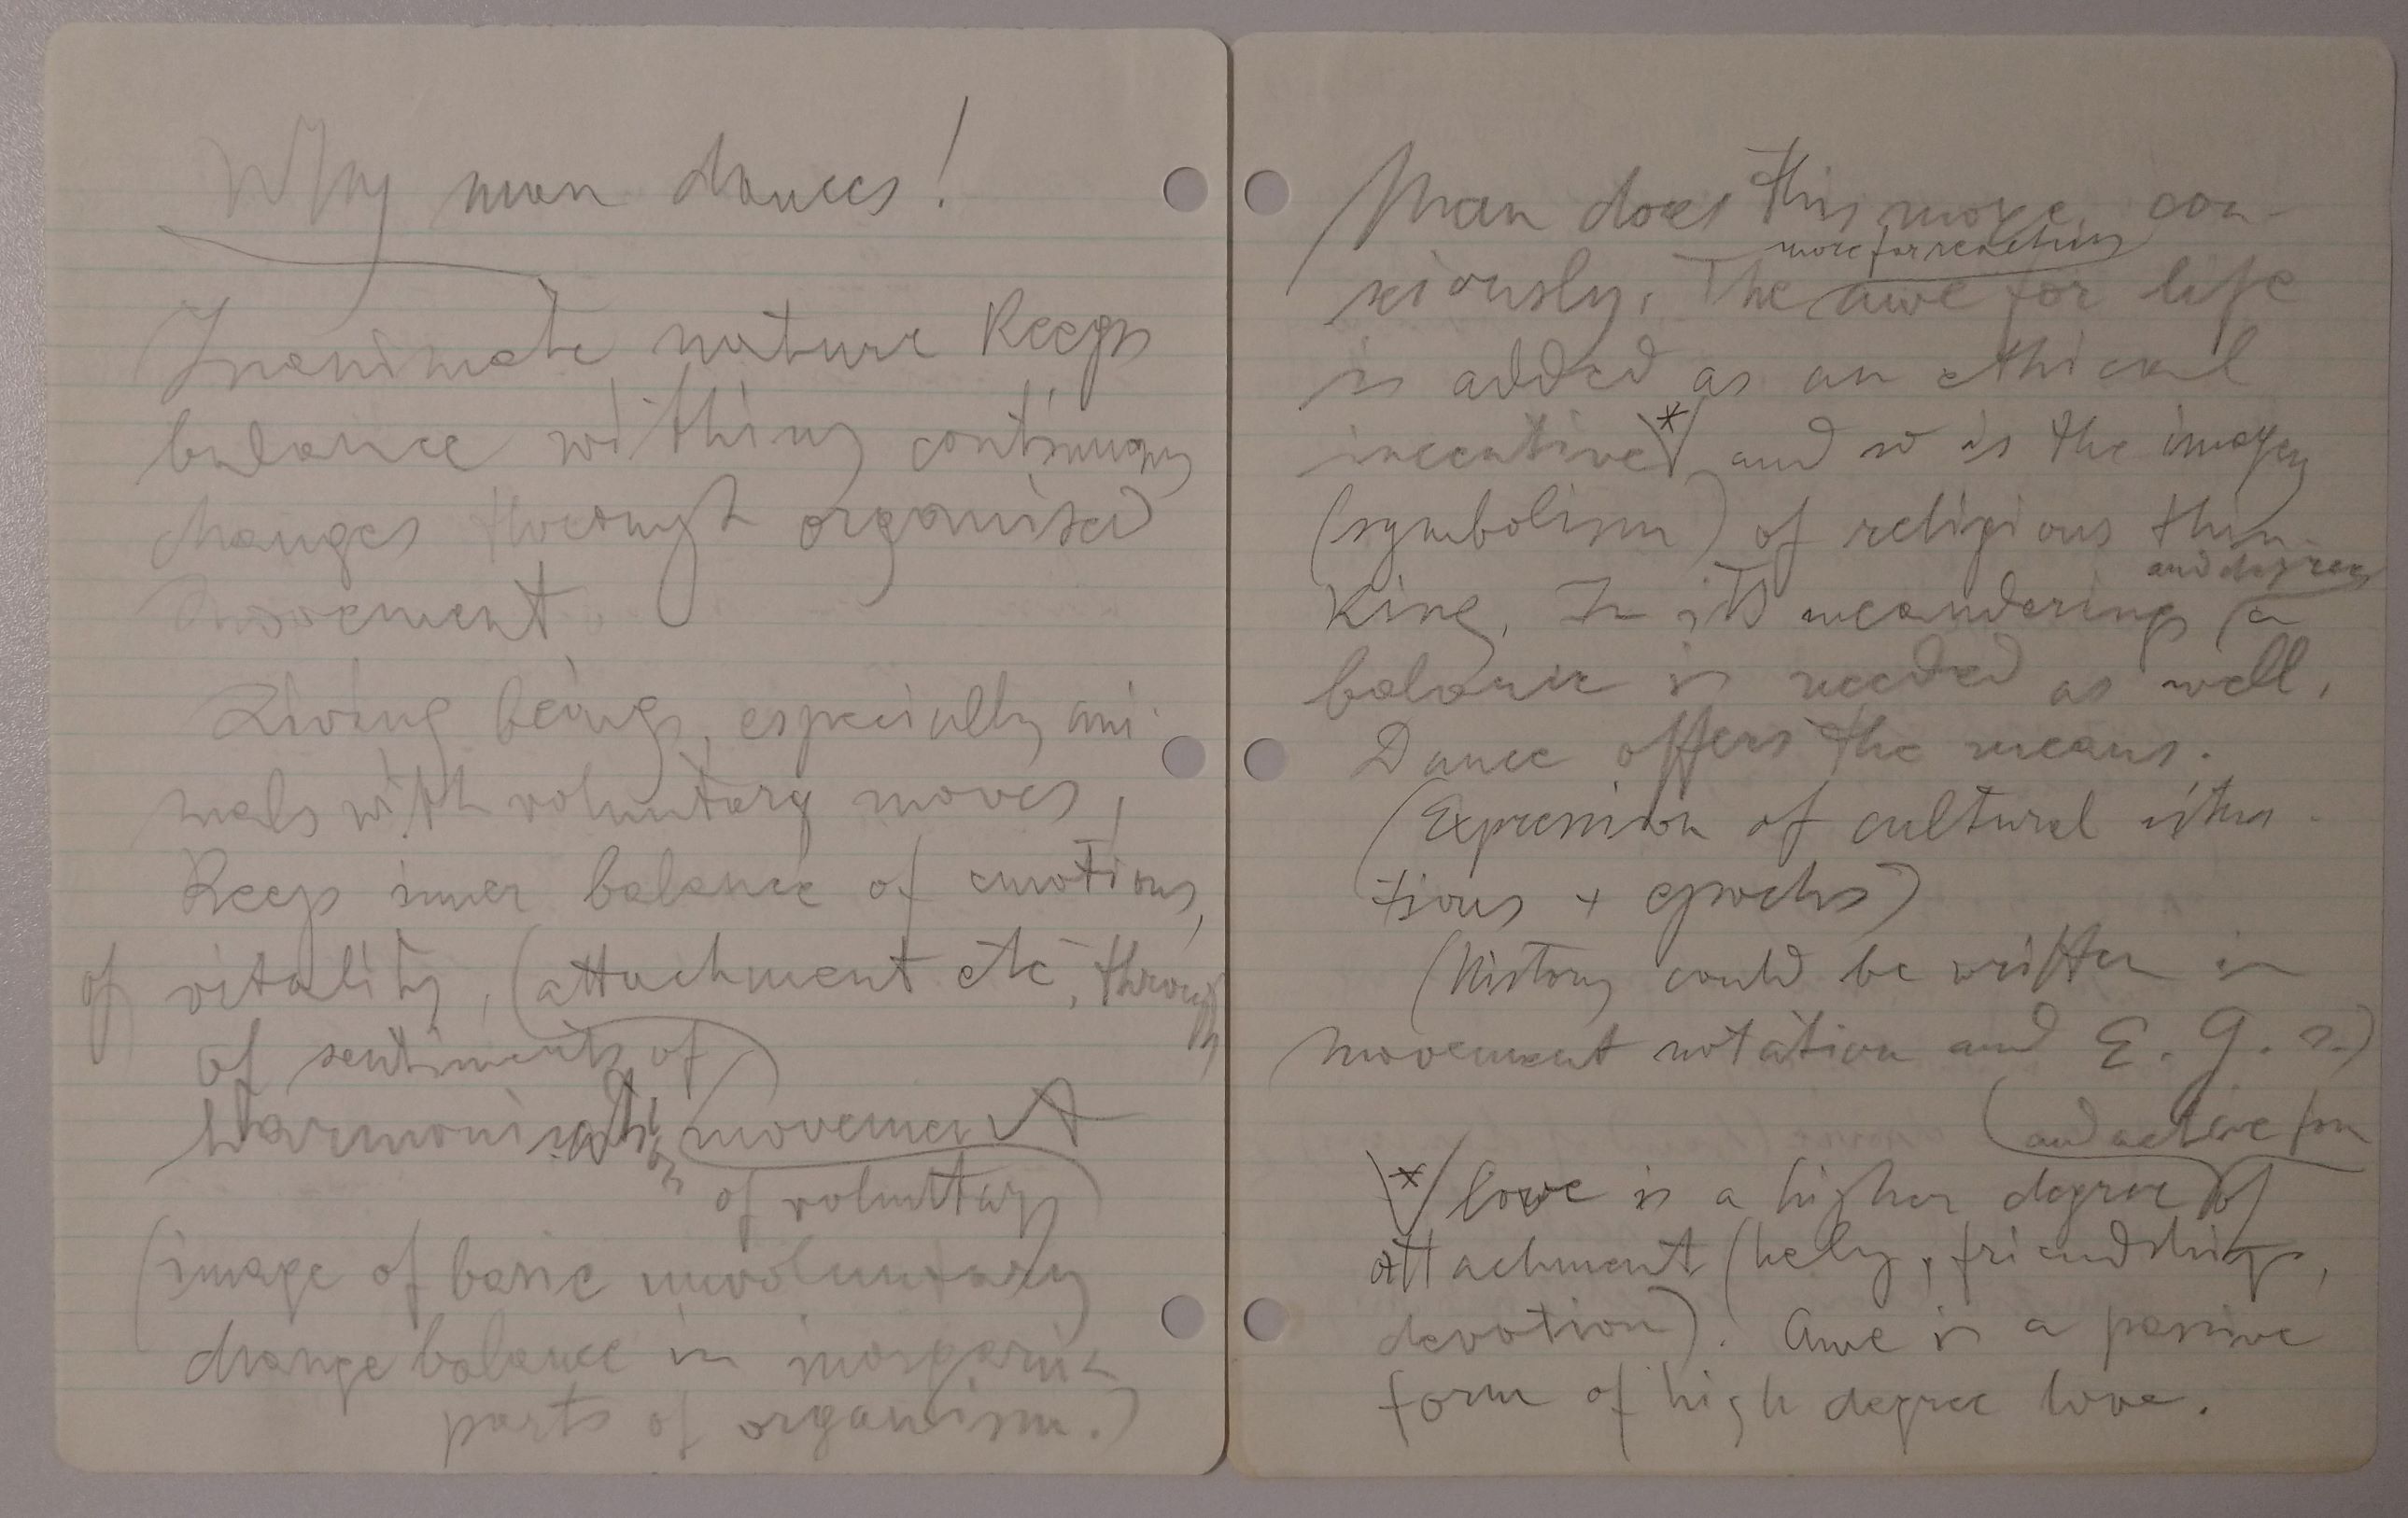 Why man dances!
Inanimate nature keeps
balance withing continuous
changes through organised
movement.
Living beings, especially ani-
mals with voluntary moves,
keep inner balance of emotions,
of vitality, (attachment etc, through
of sentiments of
harmonious movement
of voluntary
(image of basic unvoluntary
change balance in inorganic
parts of organism.)
Man does this more con-
sciously. The awe for life
more far reaching
is added as an ethical
incentive * and so is the imagery
(symbolism) of religious thin-
and degrees
king. In its meanderings a
balance is needed as well.
Dance offers the means.
(Expression of cultural situa-
tions + epochs)
(History could be written in
movement notation and E.G.s.)
(and active form
* love is a higher degree of
attachment (help, friendship,
devotion). Awe is a passive
form of high degree love.